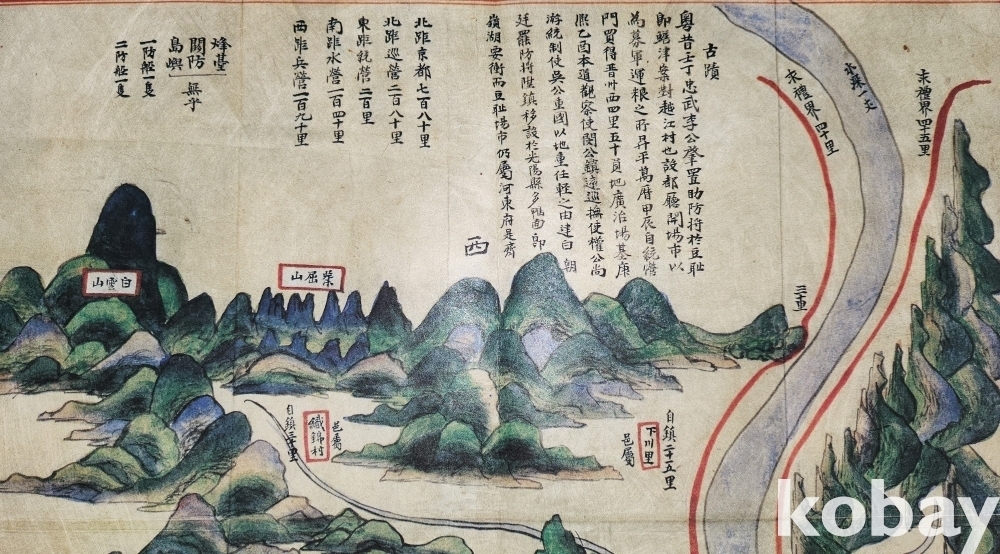 求禮界四十五里
求禮界四十里
古蹟
粤昔壬丁忠武李公肇置助防将於豆耻
即蟾津案對越江村也設都廳開場市以
為募軍運粮之所昇平萬曆甲辰自統營
門買得晋州西四里五十負地廣治場基康
熙乙酉本道觀察使閔公鎮遠巡撫使權公尚
游統制使吳公重國以地重任軽之由達白 朝
廷罷防将陞鎮移設於光陽縣多鴨面即
嶺湖要衝而豆耻場市仍屬河東府是齊
北距京都七百八十里
北距巡營二百八十里
東距統營二百里
南距水營一百四十里
西距兵營一百九十里
烽臺
關防 無乎
島嶼
一防船一隻
二防船一隻
西
屈山
白雲山
自鎮二十五里
下川里
邑屬
邑屬
鐵錦村
自鎮二十里
kobay